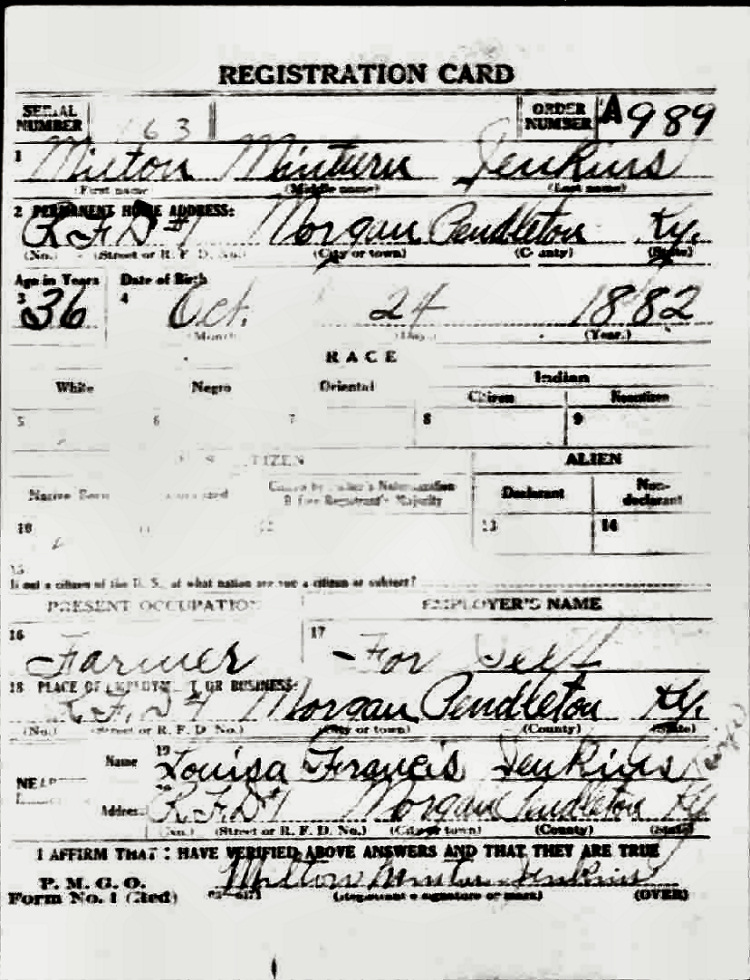 REGISTRATION CARD
SERIAL NUMBER 63 ORDER NUMBER A989
1 Milton Minturn Jenkins
(First name) (Middle name) (Last name)
2 PERMANENT HOME ADDRESS:
R.F.D #1 Morgan Pendleton Ky.
(No.) (Street or R. F. D. No.) (City or town) (County) (State)
Age in Years Date of Birth
3 36 4 Oct. 24 1882
(Month) (Day) (Year.)
RACE
White Negro Oriental Indian
Citizen Noncitizen
5 6 7 8 9
U. S. CITIZEN ALIEN
Native Born Naturalized Citizen by Father's Naturalization Before Registrant's Majority Declarant Non-declarant
10 11 12 13 14
15
If not a citizen of the U. S., of what nation are you a citizen or subject?
PRESENT OCCUPATION EMPLOYER'S NAME
16 Farmer 17 For Self
18 PLACE OF EMPLOYMENT OR BUSINESS:
R.F.D 1 Morgan Pendleton Ky.
(No.) (Street or R. F. D. No.) (City or town) (County) (State)
Name 19 Louisa Francis Jenkins
NEAREST
Address R.F.D 1 Morgan Pendleton Ky
(No.) (Street or R. F. D. No.) (City or town) (County) (State)
I AFFIRM THAT I HAVE VERIFIED ABOVE ANSWERS AND THAT THEY ARE TRUE
P. M. G. O.
Form No. 1 (Red) Milton Minturn Jenkins
(Registrant's signature or mark) (OVER)